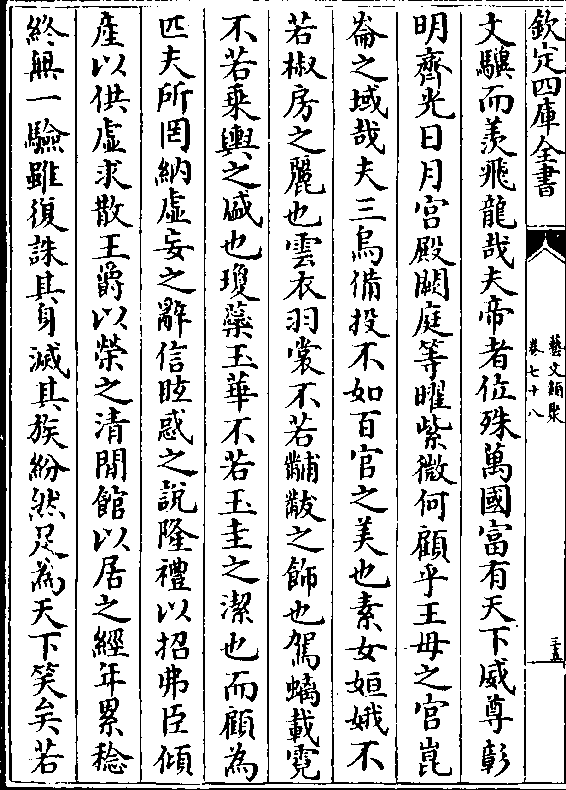 欽定四庫全書
藝文類聚
卷七十八
三五
文驥而羡飛龍哉夫帝者位殊萬國富有天下威尊彰
明齊光日月宫殿闕庭等曜紫微何顧乎王母之宫崑
崙之域哉夫三烏備投不如百官之美也素女姮娥不
若椒房之麗也雲衣羽裳不若黼黻之飾也駕螭載霓
不若乗輿之盛也瓊蘂玉華不若玉圭之潔也而顧為
匹夫所罔納虚妄之辭信眩惑之說隆禮以招弗臣傾
產以供虛求散王爵以榮之清閒館以居之經年累稔
終無一驗雖復誅其身滅其族紛然足為天下笑矣若